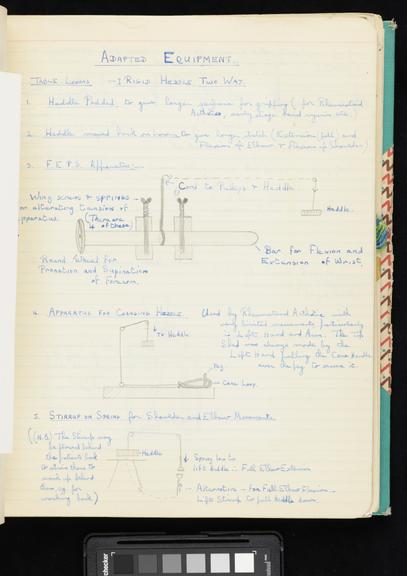 ADAPTED EQUIPMENT.
TABLE LOOMS - I RIGID HEDDLE TWO WAY.
1. Heddle Padded to give larger surface for gripping (for Rheumatoid
Arthritis, early stage hand injuries etc.)
2. Heddle moved back on looms to give longer (Extension (full) and
Flexion of Elbow & Flexion of Shoulder)
3. F.E.P.S. Apparatus:-
Cord to Pulleys & Heddle
Wing screws & springs
on alterating tension of
apparatus. (There are
4 of these)
Heddle.
Bar for Flexion and
Extension of Wrist
Round Wheel for
Pronation and Supination
of Forearm.
4. APPARATUS FOR CHANGING HEDDLE.
Used by Rheumatoid Arthritis with
very limited movements particularly
in Left Hand and Arm. The
Shed was always made by the
Left Hand pulling the Cord Handle
over the peg to secure it.
To Heddle
Peg
Cord Loop.
5. STIRRUP OR SPRING for Shoulder and Elbow Movements
(N.B) The Stirrup may
be placed behind
the patient's back
to them to
reach up behind
them, eg. for
back)
Heddle
Spring to
lift heddle :. Full Elbow Extension
Alternative - For Full Elbow Flexion -
Lift Stirrup to pull Heddle down.
checker